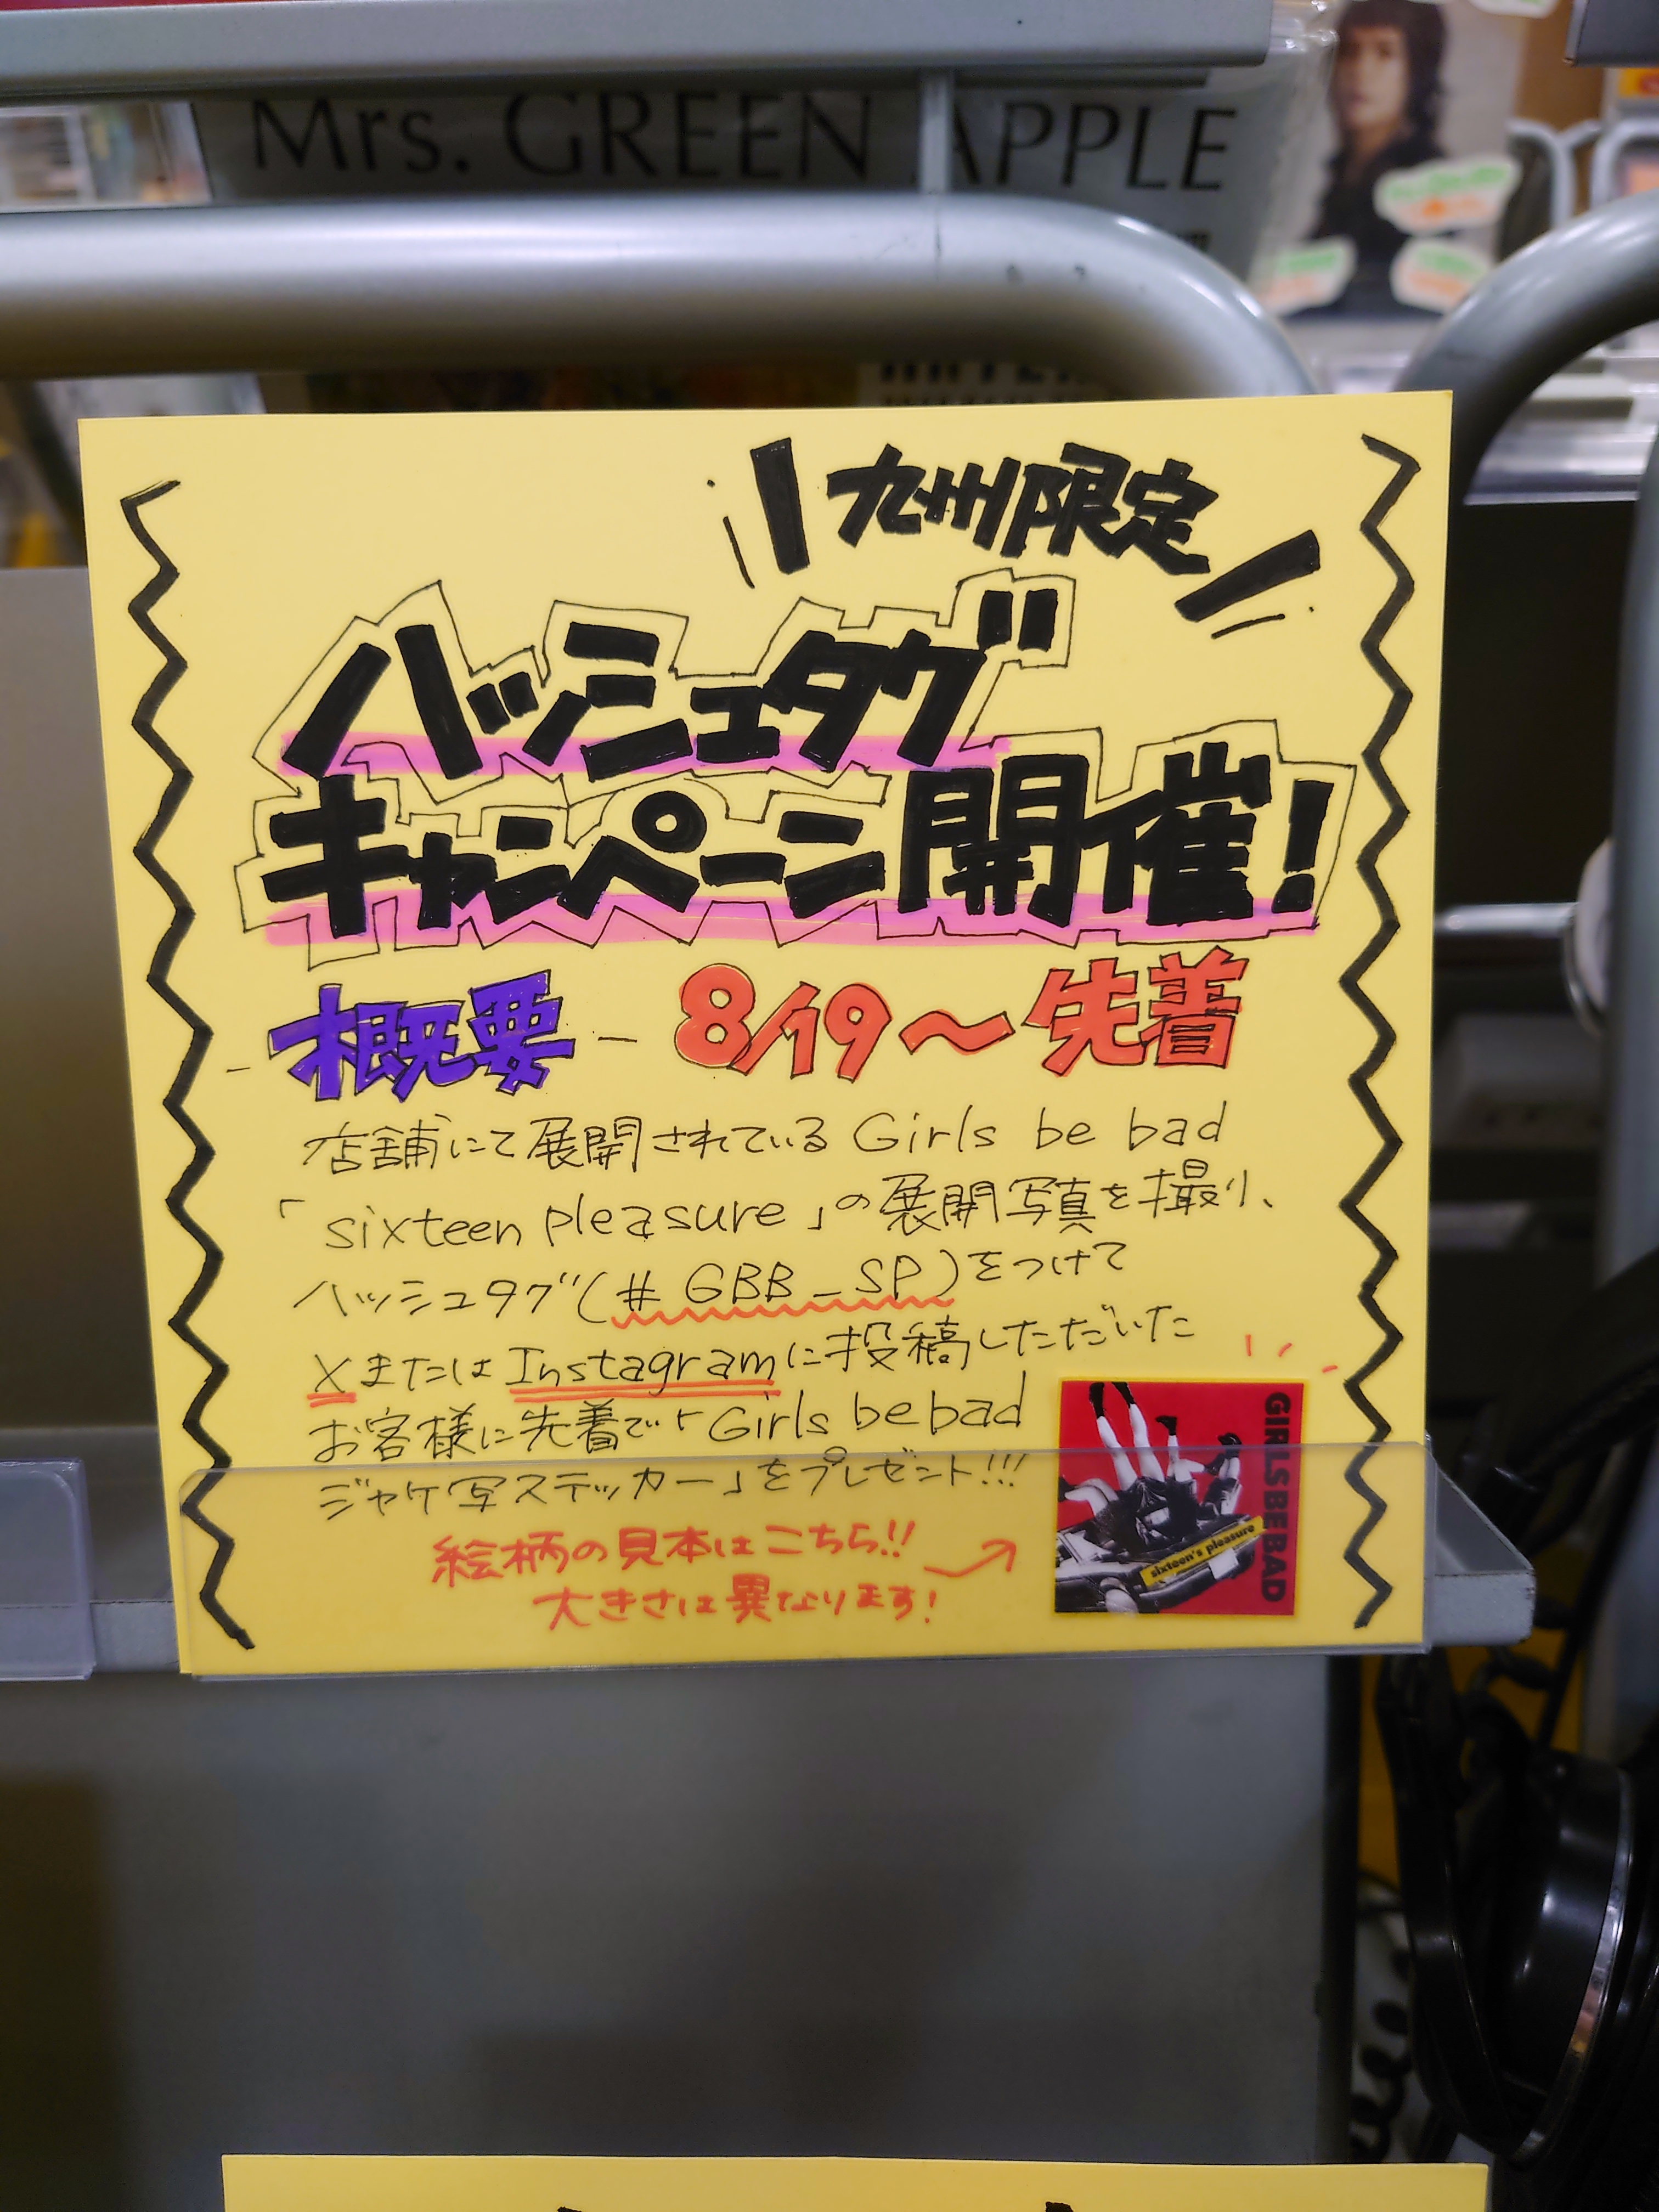 Mrs. GREEN APPLE
九州限定
ハッシュタグ
キャンペーン開催!
概要 - 8/19〜先着
店舗にて展開されている Girls be bad
「sixteen pleasure」の展開写真を撮り、
ハッシュタグ(# GBB_SP)をつけて
XまたはInstagramに投稿しただいた
お客様に先着で「Girls be bad
ジャケ写ステッカー」をプレゼント!!!
絵柄の見本はこちら!!
大きさは異なります!
GIRLS BE BAD
sixteen's pleasure